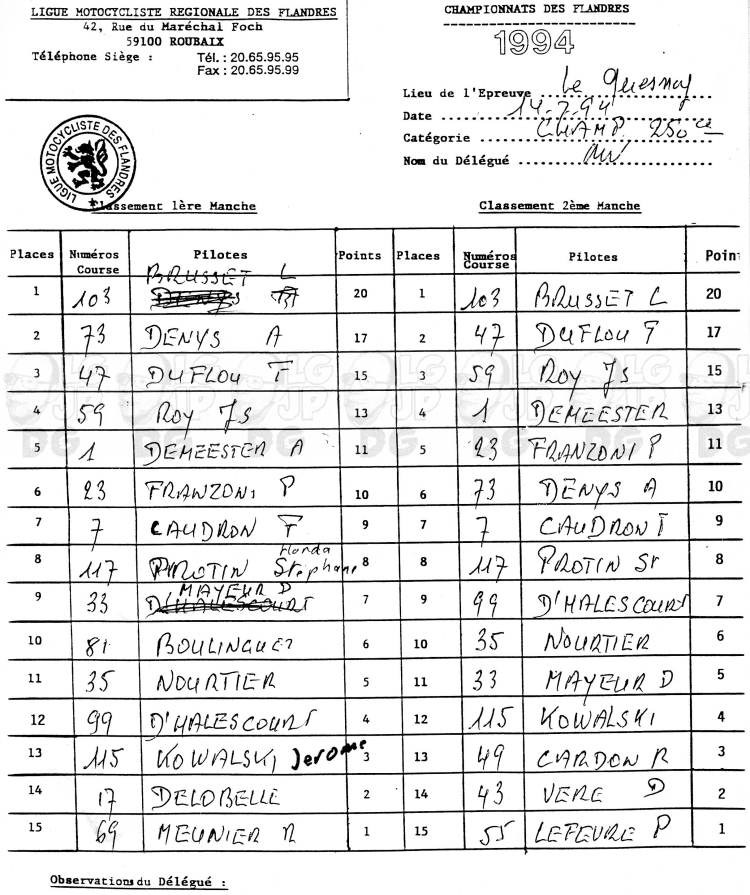 LIGUE MOTOCYCLISTE REGIONALE DES FLANDRES
42, Rue du Maréchal Foch
59100 ROUBAIX
Téléphone Siège : Tél. : 20.65.95.95
Fax : 20.65.95.99
CHAMPIONNATS DES FLANDRES
1994
Lieu de l'Epreuve Le Quesnoy
Date 14-7-94
Catégorie CHAMP. 250 cc
Nom du Délégué
LIGUE MOTOCYCLISTE DES FLANDRES
Classement 1ère Manche Classement 2ème Manche
Places Numéros Course Pilotes Points Places Numéros Course Pilotes Point
1 103 BRUSSET L 20 1 103 BRUSSET L 20
2 73 DENYS A 17 2 47 DUFLOU F 17
3 47 DUFLOU F 15 3 59 ROY JS 15
4 59 ROY JS 13 4 1 DEMEESTER 13
5 1 DEMEESTER A 11 5 23 FRANZONI P 11
6 23 FRANZONI P 10 6 73 DENYS A 10
7 7 CAUDRON F 9 7 7 CAUDRON F 9
8 117 PROTIN Honda Stéphane 8 8 117 PROTIN St 8
9 33 MAYEUR D D'HALESCOURT 7 9 99 D'HALESCOURT 7
10 81 BOULINGUEZ 6 10 35 NOURTIER 6
11 35 NOURTIER 5 11 33 MAYEUR D 5
12 99 D'HALESCOURT 4 12 115 KOWALSKI 4
13 115 KOWALSKI Jerome 3 13 49 CARDON R 3
14 17 DELOBELLE 2 14 43 VERE D 2
15 69 MEUNIER R 1 15 55 LEFEVRE P 1
Observations du Délégué :
LG JP DG